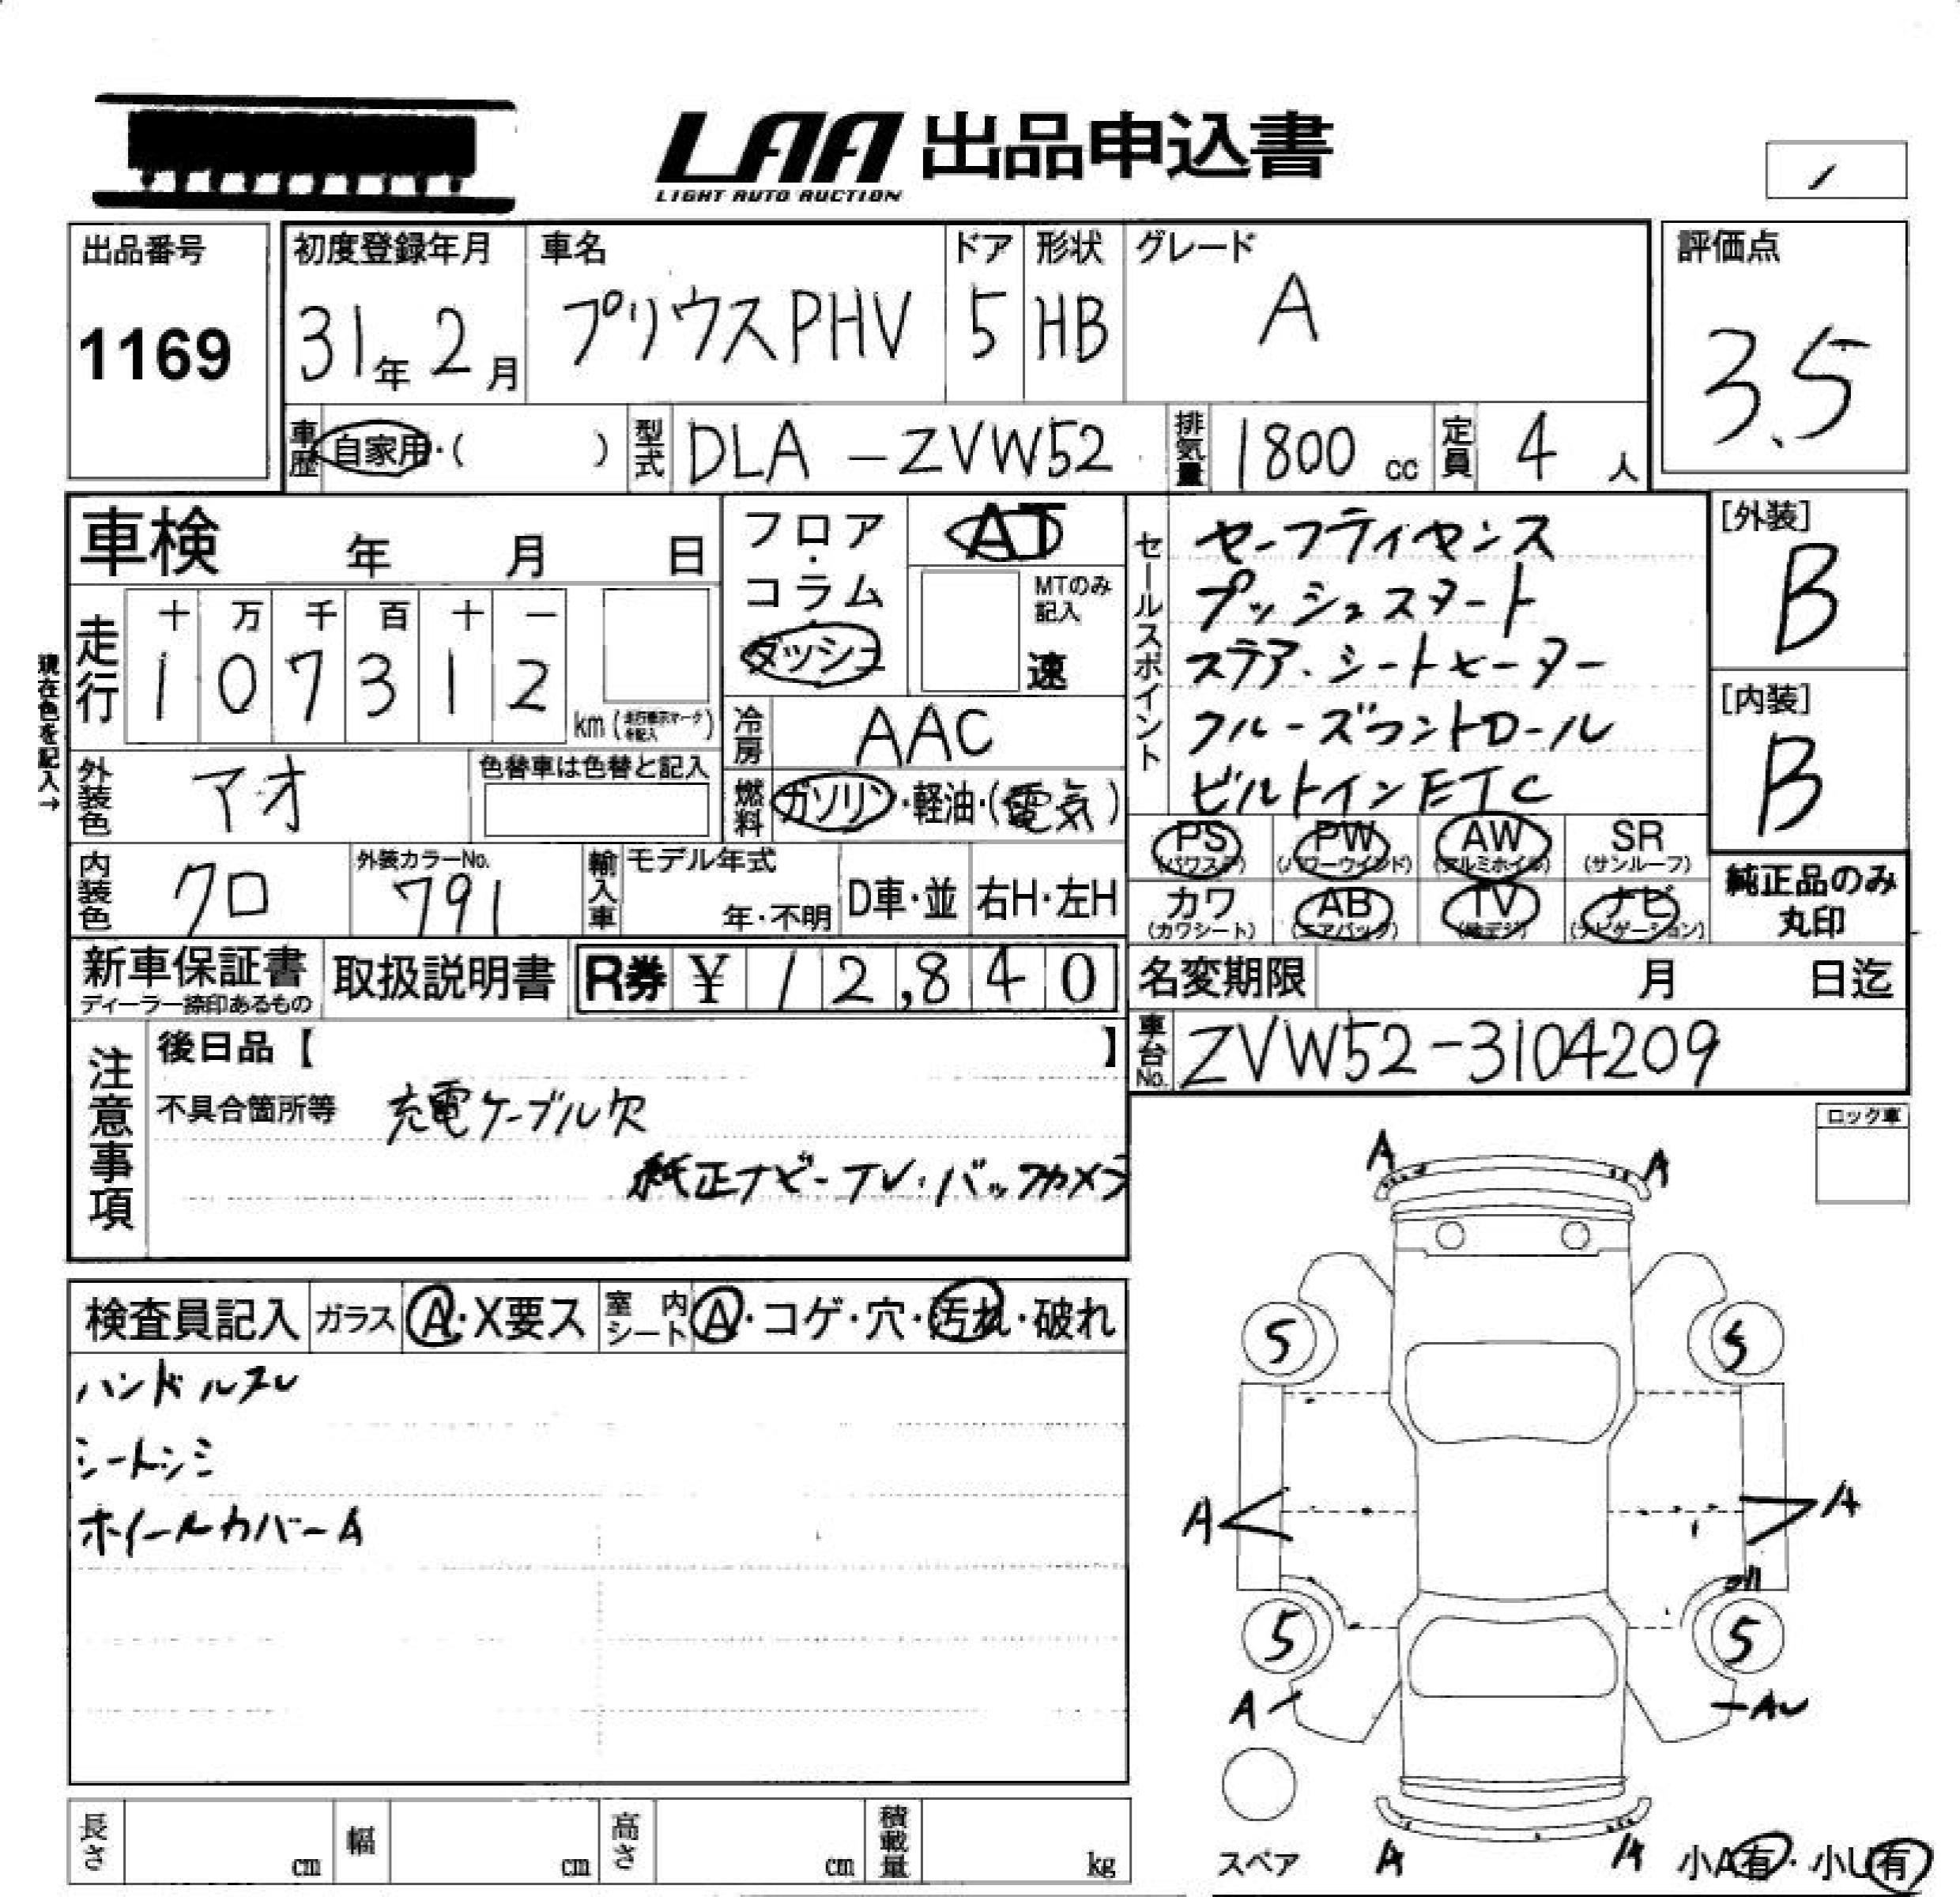 LAA 出品申込書
LIGHT AUTO AUCTION
出品番号
1169
初度登録年月
31年 2月
車名
プリウスPHV
ドア
5
形状
HB
グレード
A
評価点
3.5
車歴 自家用・( )
型式 DLA-ZVW52
排気量 1800 cc
定員 4 人
車検 年 月 日
フロア・コラム・ダッシュ
AT
MTのみ記入
速
現在色を記入→
走行
十 万 千 百 十 一
1 0 7 3 1 2
km (走行表示マークを記入)
冷房 AAC
外装色 アオ
色替車は色替と記入
燃料 ガソリン・軽油・(電気)
内装色 クロ
外装カラーNo.
791
輸入車 モデル年式
年・不明
D車・並
右H・左H
セールスポイント
セーフティセンス
プッシュスタート
ステア.シートヒーター
クルーズコントロール
ビルトインETC
[外装]
B
[内装]
B
PS (パワステ)
PW (パワーウインド)
AW (アルミホイル)
SR (サンルーフ)
カワ (カワシート)
AB (エアバック)
TV (地デジ)
ナビ (ナビゲーション)
純正品のみ丸印
新車保証書
ディーラー捺印あるもの
取扱説明書
R券 ¥ 12,840
名変期限 月 日迄
車台No. ZVW52-3104209
注意事項
後日品【 】
不具合箇所等 充電ケーブル欠
純正ナビ-TV.バックカメラ
ロック車
検査員記入
ガラス A・X要ス
室内シート A・コゲ・穴・汚れ・破れ
ハンドルスレ
シートシミ
ホイールカバーA
A A
5 5
A A
5 5
A AU
スペア
A A
小A有・小U有
長さ cm
幅 cm
高さ cm
積載量 kg